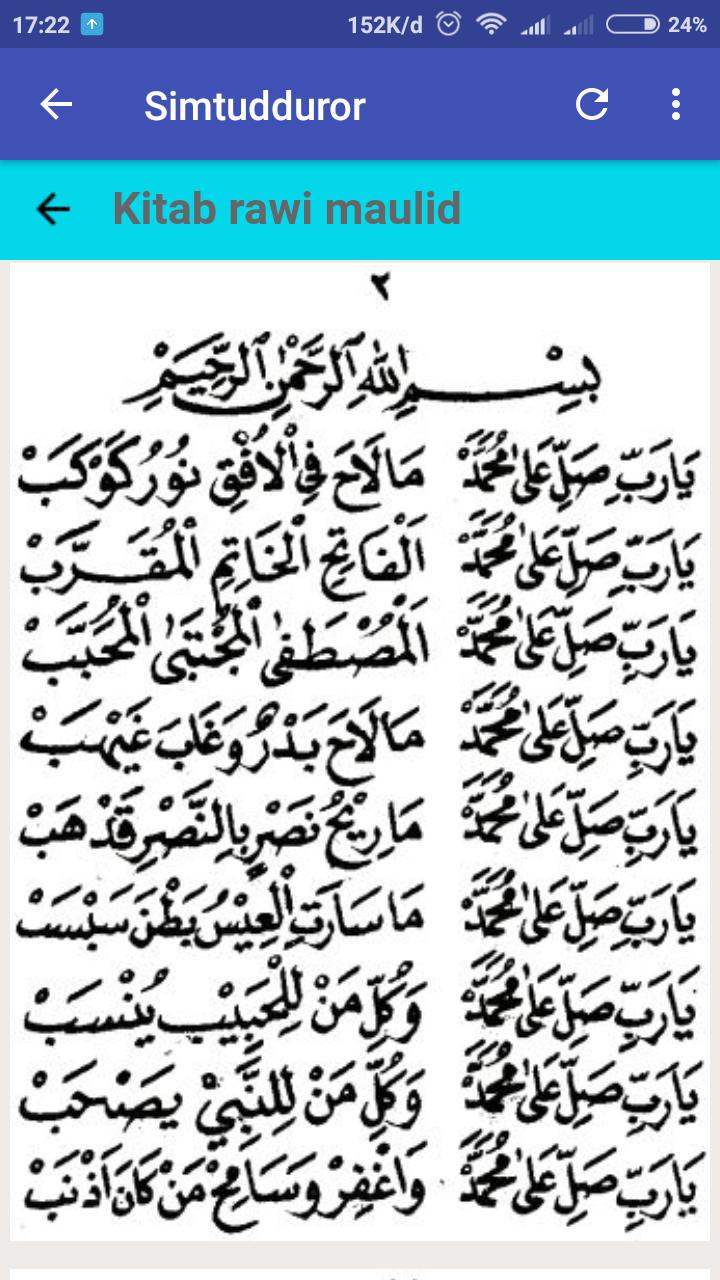 17:22 152K/d 24%
Simtudduror
Kitab rawi maulid
٢
بِسْمِ اللهِ الرَّحْمٰنِ الرَّحِيْمِ
يَارَبِّ صَلِّ عَلىٰ مُحَمَّدْ مَالَاحَ فِي الْاُفْقِ نُوْرُ كَوْكَبْ
يَارَبِّ صَلِّ عَلىٰ مُحَمَّدْ اَلْفَاتِحِ الْخَاتِمِ الْمُقَرَّبْ
يَارَبِّ صَلِّ عَلىٰ مُحَمَّدْ اَلْمُصْطَفىٰ الْمُجْتَبىٰ الْمُحَبَّبْ
يَارَبِّ صَلِّ عَلىٰ مُحَمَّدْ مَالَاحَ بَدْرٌ وَغَابَ غَيْهَبْ
يَارَبِّ صَلِّ عَلىٰ مُحَمَّدْ مَارِيْحُ نَصْرٍ بِالنَّصْرِ قَدْ هَبْ
يَارَبِّ صَلِّ عَلىٰ مُحَمَّدْ مَاسَارَتِ الْعِيْسُ بَطْنَ سَبْسَبْ
يَارَبِّ صَلِّ عَلىٰ مُحَمَّدْ وَكُلِّ مَنْ لِلْحَبِيْبِ يُنْسَبْ
يَارَبِّ صَلِّ عَلىٰ مُحَمَّدْ وَكُلِّ مَنْ لِلنَّبِيْ يَصْحَبْ
يَارَبِّ صَلِّ عَلىٰ مُحَمَّدْ وَاغْفِرْ وَسَامِحْ مَنْ كَانَ اَذْنَبْ